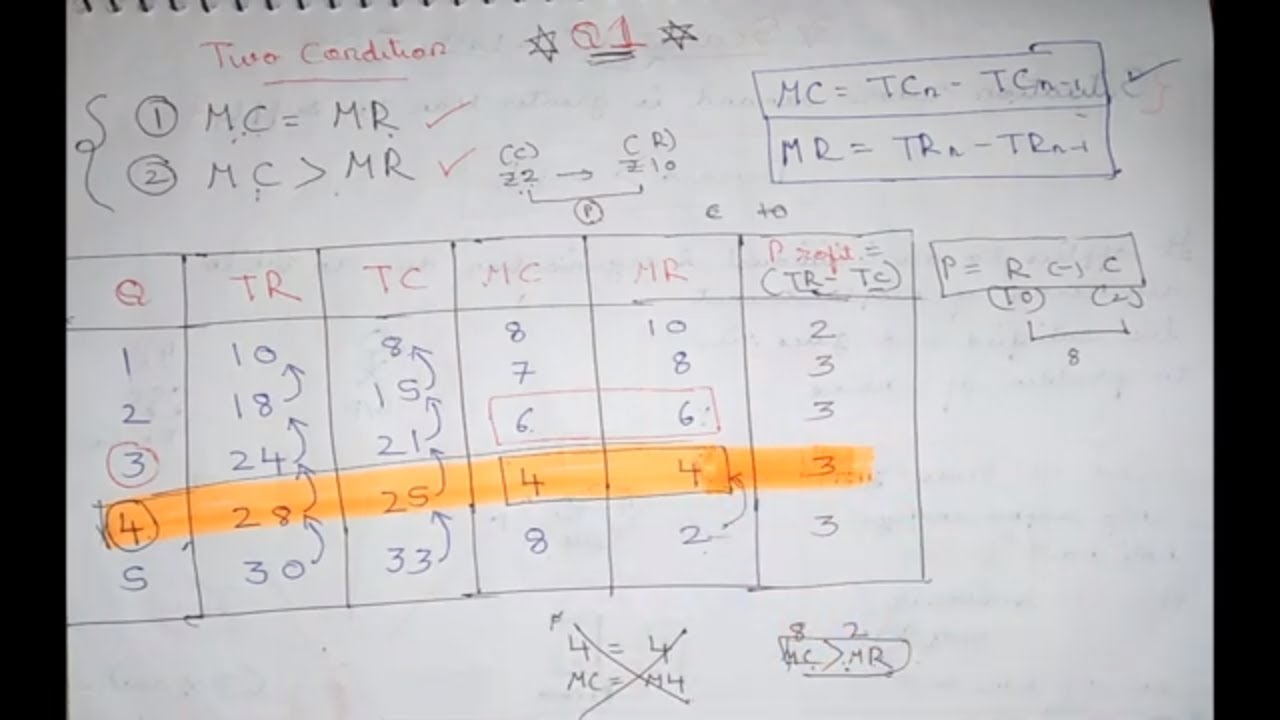 Two Condition ☆ Q1 ☆
① MC = MR ✓
② MC > MR ✓
(C) (R)
₹2 → ₹10
(P)
MC = TCn - TCn-1 ✓
MR = TRn - TRn-1
c to
Q TR TC MC MR Profit = (TR - TC)
1 10 8 8 10 2
2 18 15 7 8 3
3 24 21 6 6 3
4 28 25 4 4 3
5 30 33 8 2 3
P = R (-) C
(10) (2)
8
4 = 4
MC = M4
8 2
MC > MR